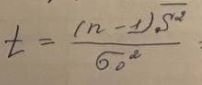 t = \frac{(n-1)\overline{S^2}}{\sigma_0^2}